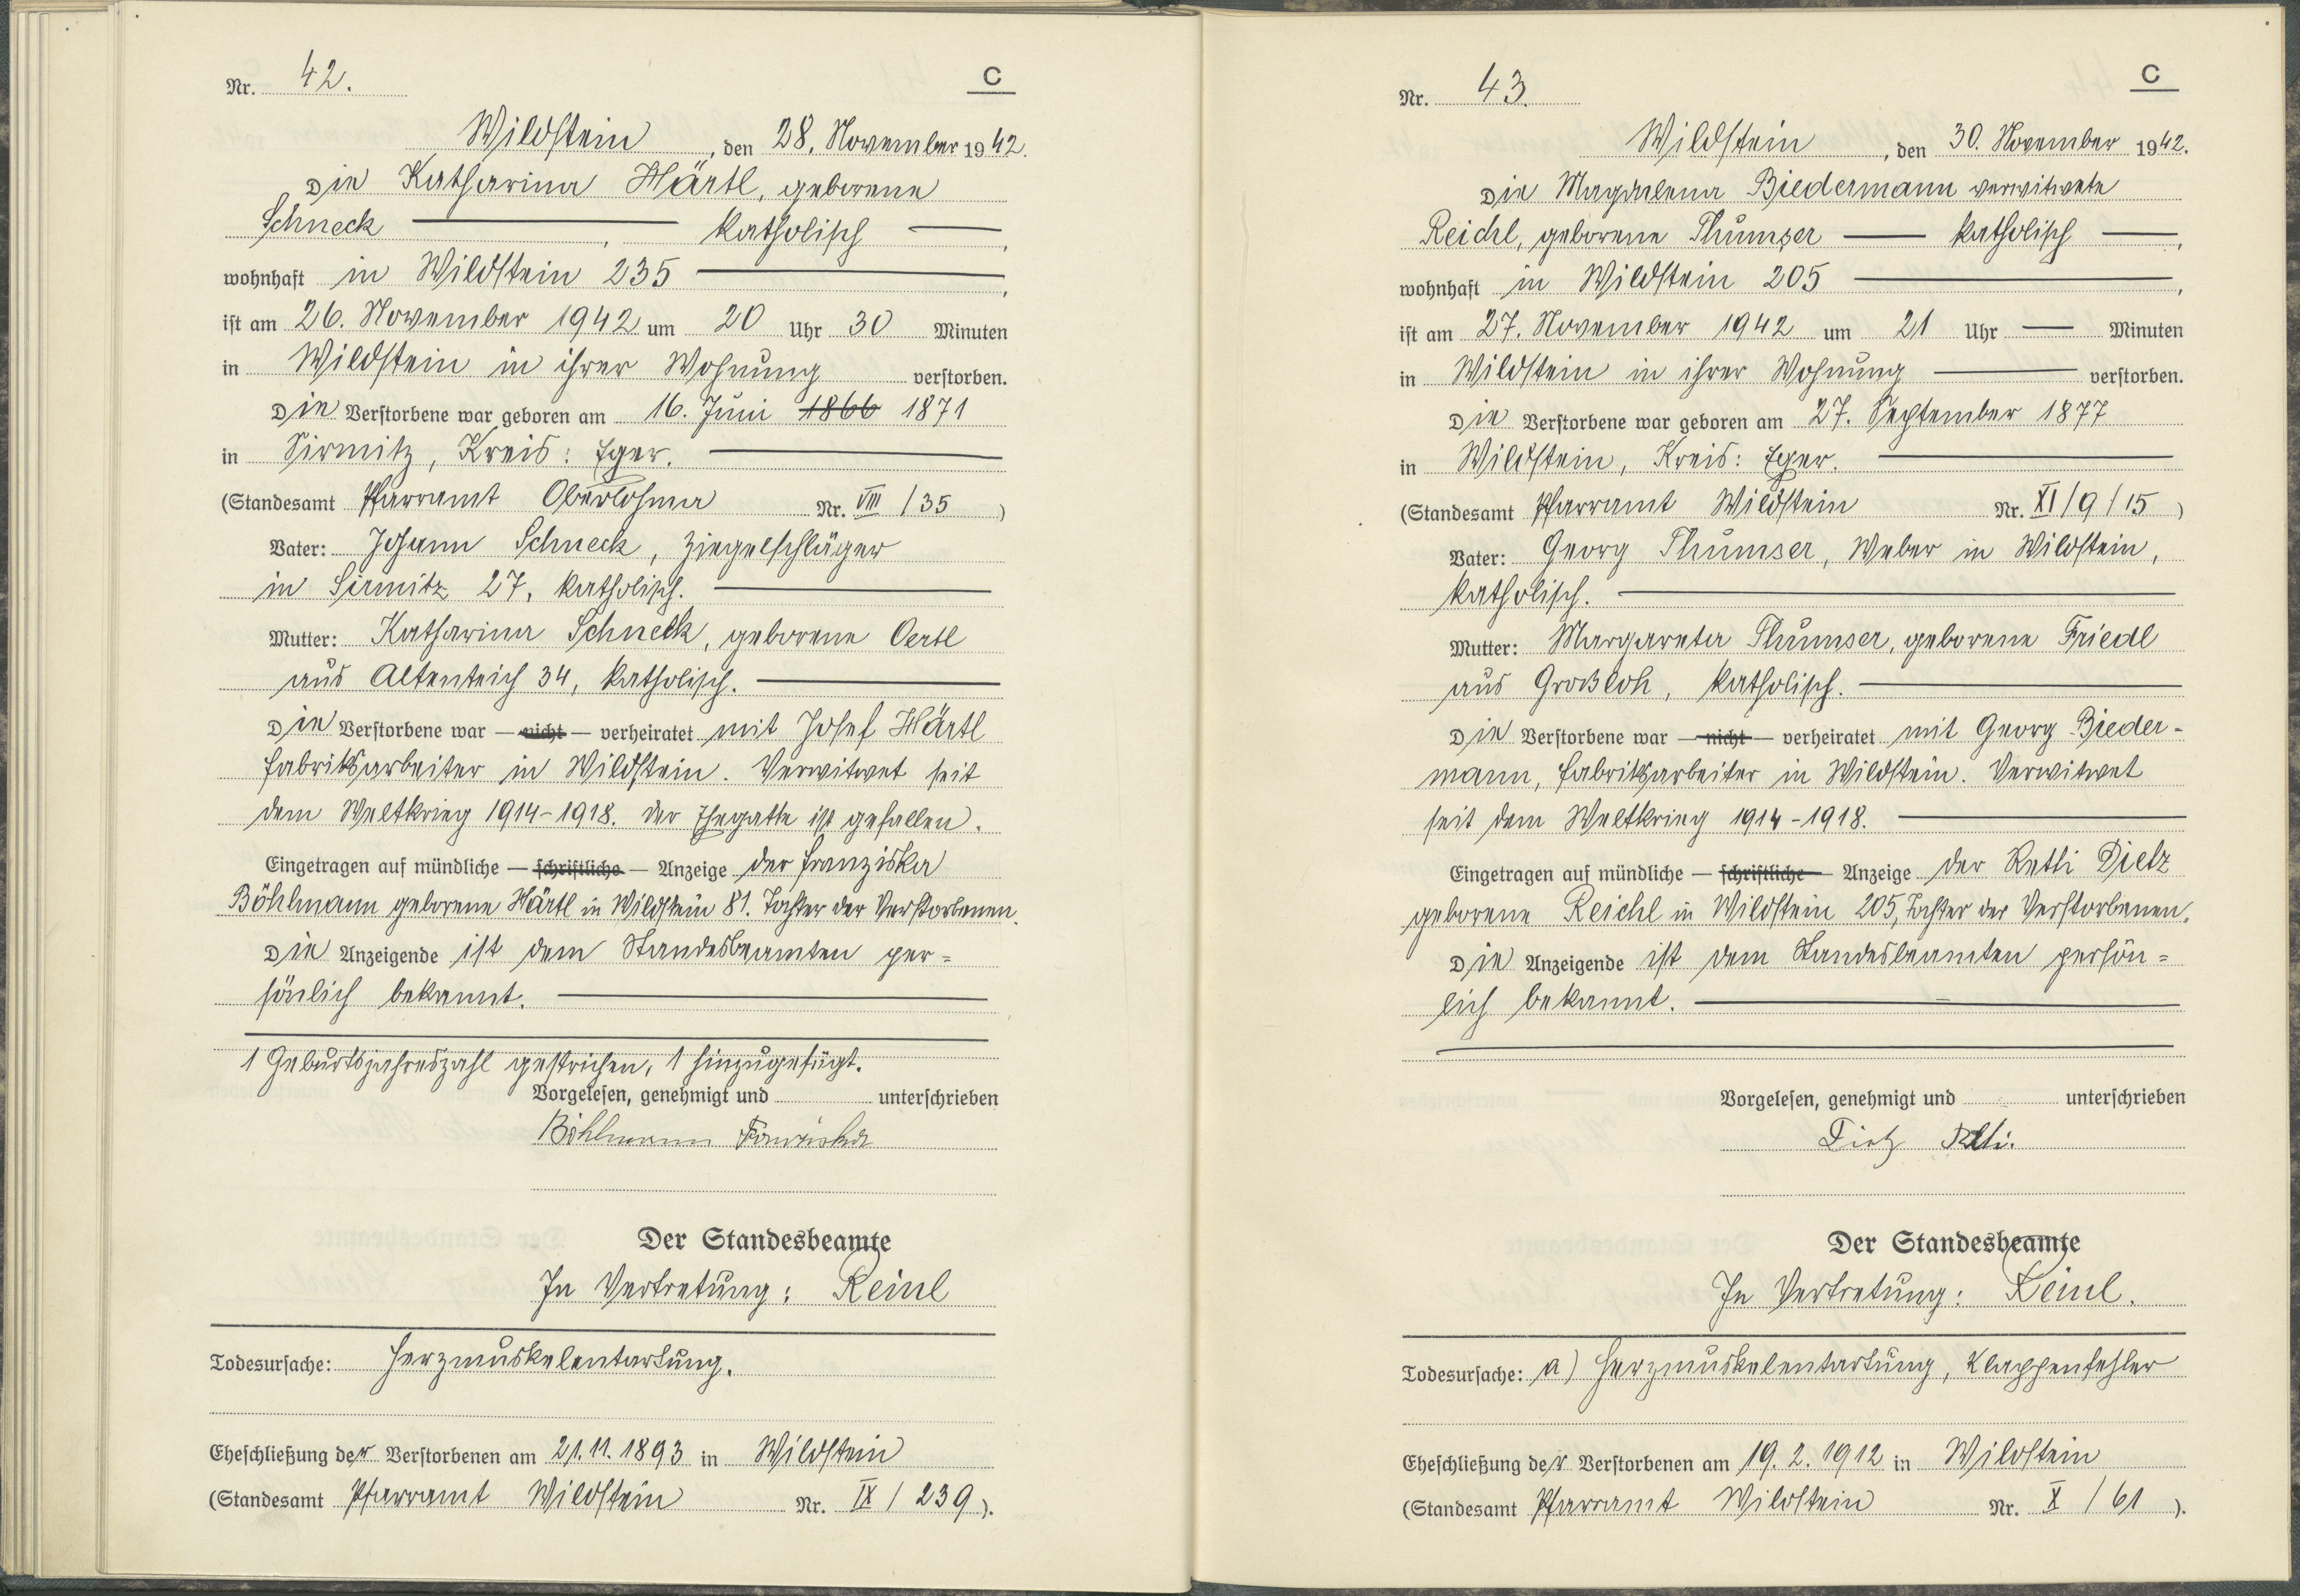 Nr. 42.
C
Wildstein, den 28. November 1942.
Die Katharina Härtl, geborene
Schneck, katholisch,
wohnhaft in Wildstein 235,
ist am 26. November 1942 um 20 Uhr 30 Minuten
in Wildstein in ihrer Wohnung verstorben.
Die Verstorbene war geboren am 16. Juni 1866 1871
in Sirmitz, Kreis: Eger.
(Standesamt Pfarramt Oberlohma Nr. VIII / 35)
Vater: Johann Schneck, Ziegelschläger
in Sirmitz 27, katholisch.
Mutter: Katharina Schneck, geborene Oertl
aus Altenteich 34, katholisch.
Die Verstorbene war — nicht — verheiratet mit Josef Härtl
Fabriksarbeiter in Wildstein. Verwitwet seit
dem Weltkrieg 1914-1918. Der Ehegatte ist gefallen.
Eingetragen auf mündliche — schriftliche — Anzeige der Franziska
Böhlmann geborene Härtl in Wildstein 81. Tochter der Verstorbenen.
Die Anzeigende ist dem Standesbeamten per=
sönlich bekannt.
1 Geburtsjahreszahl gestrichen, 1 hinzugefügt.
Vorgelesen, genehmigt und unterschrieben
Böhlmann Franziska
Der Standesbeamte
In Vertretung: Reinl
Todesursache: Herzmuskelentartung.
Eheschließung der Verstorbenen am 21.11.1893 in Wildstein
(Standesamt Pfarramt Wildstein Nr. IX / 239).
Nr. 43.
C
Wildstein, den 30. November 1942.
Die Magdalena Biedermann verwitwete
Reichl, geborene Thumser katholisch,
wohnhaft in Wildstein 205,
ist am 27. November 1942 um 21 Uhr — Minuten
in Wildstein in ihrer Wohnung verstorben.
Die Verstorbene war geboren am 27. September 1877
in Wildstein, Kreis: Eger.
(Standesamt Pfarramt Wildstein Nr. XI / 9 / 15)
Vater: Georg Thumser, Weber in Wildstein,
katholisch.
Mutter: Margareta Thumser, geborene Friedl
aus Großloh, katholisch.
Die Verstorbene war — nicht — verheiratet mit Georg Bieder-
mann, Fabriksarbeiter in Wildstein. Verwitwet
seit dem Weltkrieg 1914-1918.
Eingetragen auf mündliche — schriftliche — Anzeige der Retti Dietz
geborene Reichl in Wildstein 205, Tochter der Verstorbenen.
Die Anzeigende ist dem Standesbeamten persön=
lich bekannt.
Vorgelesen, genehmigt und unterschrieben
Dietz Retti.
Der Standesbeamte
In Vertretung: Reinl.
Todesursache: a) Herzmuskelentartung, Klappenfehler
Eheschließung der Verstorbenen am 19.2.1912 in Wildstein
(Standesamt Pfarramt Wildstein Nr. X / 61).